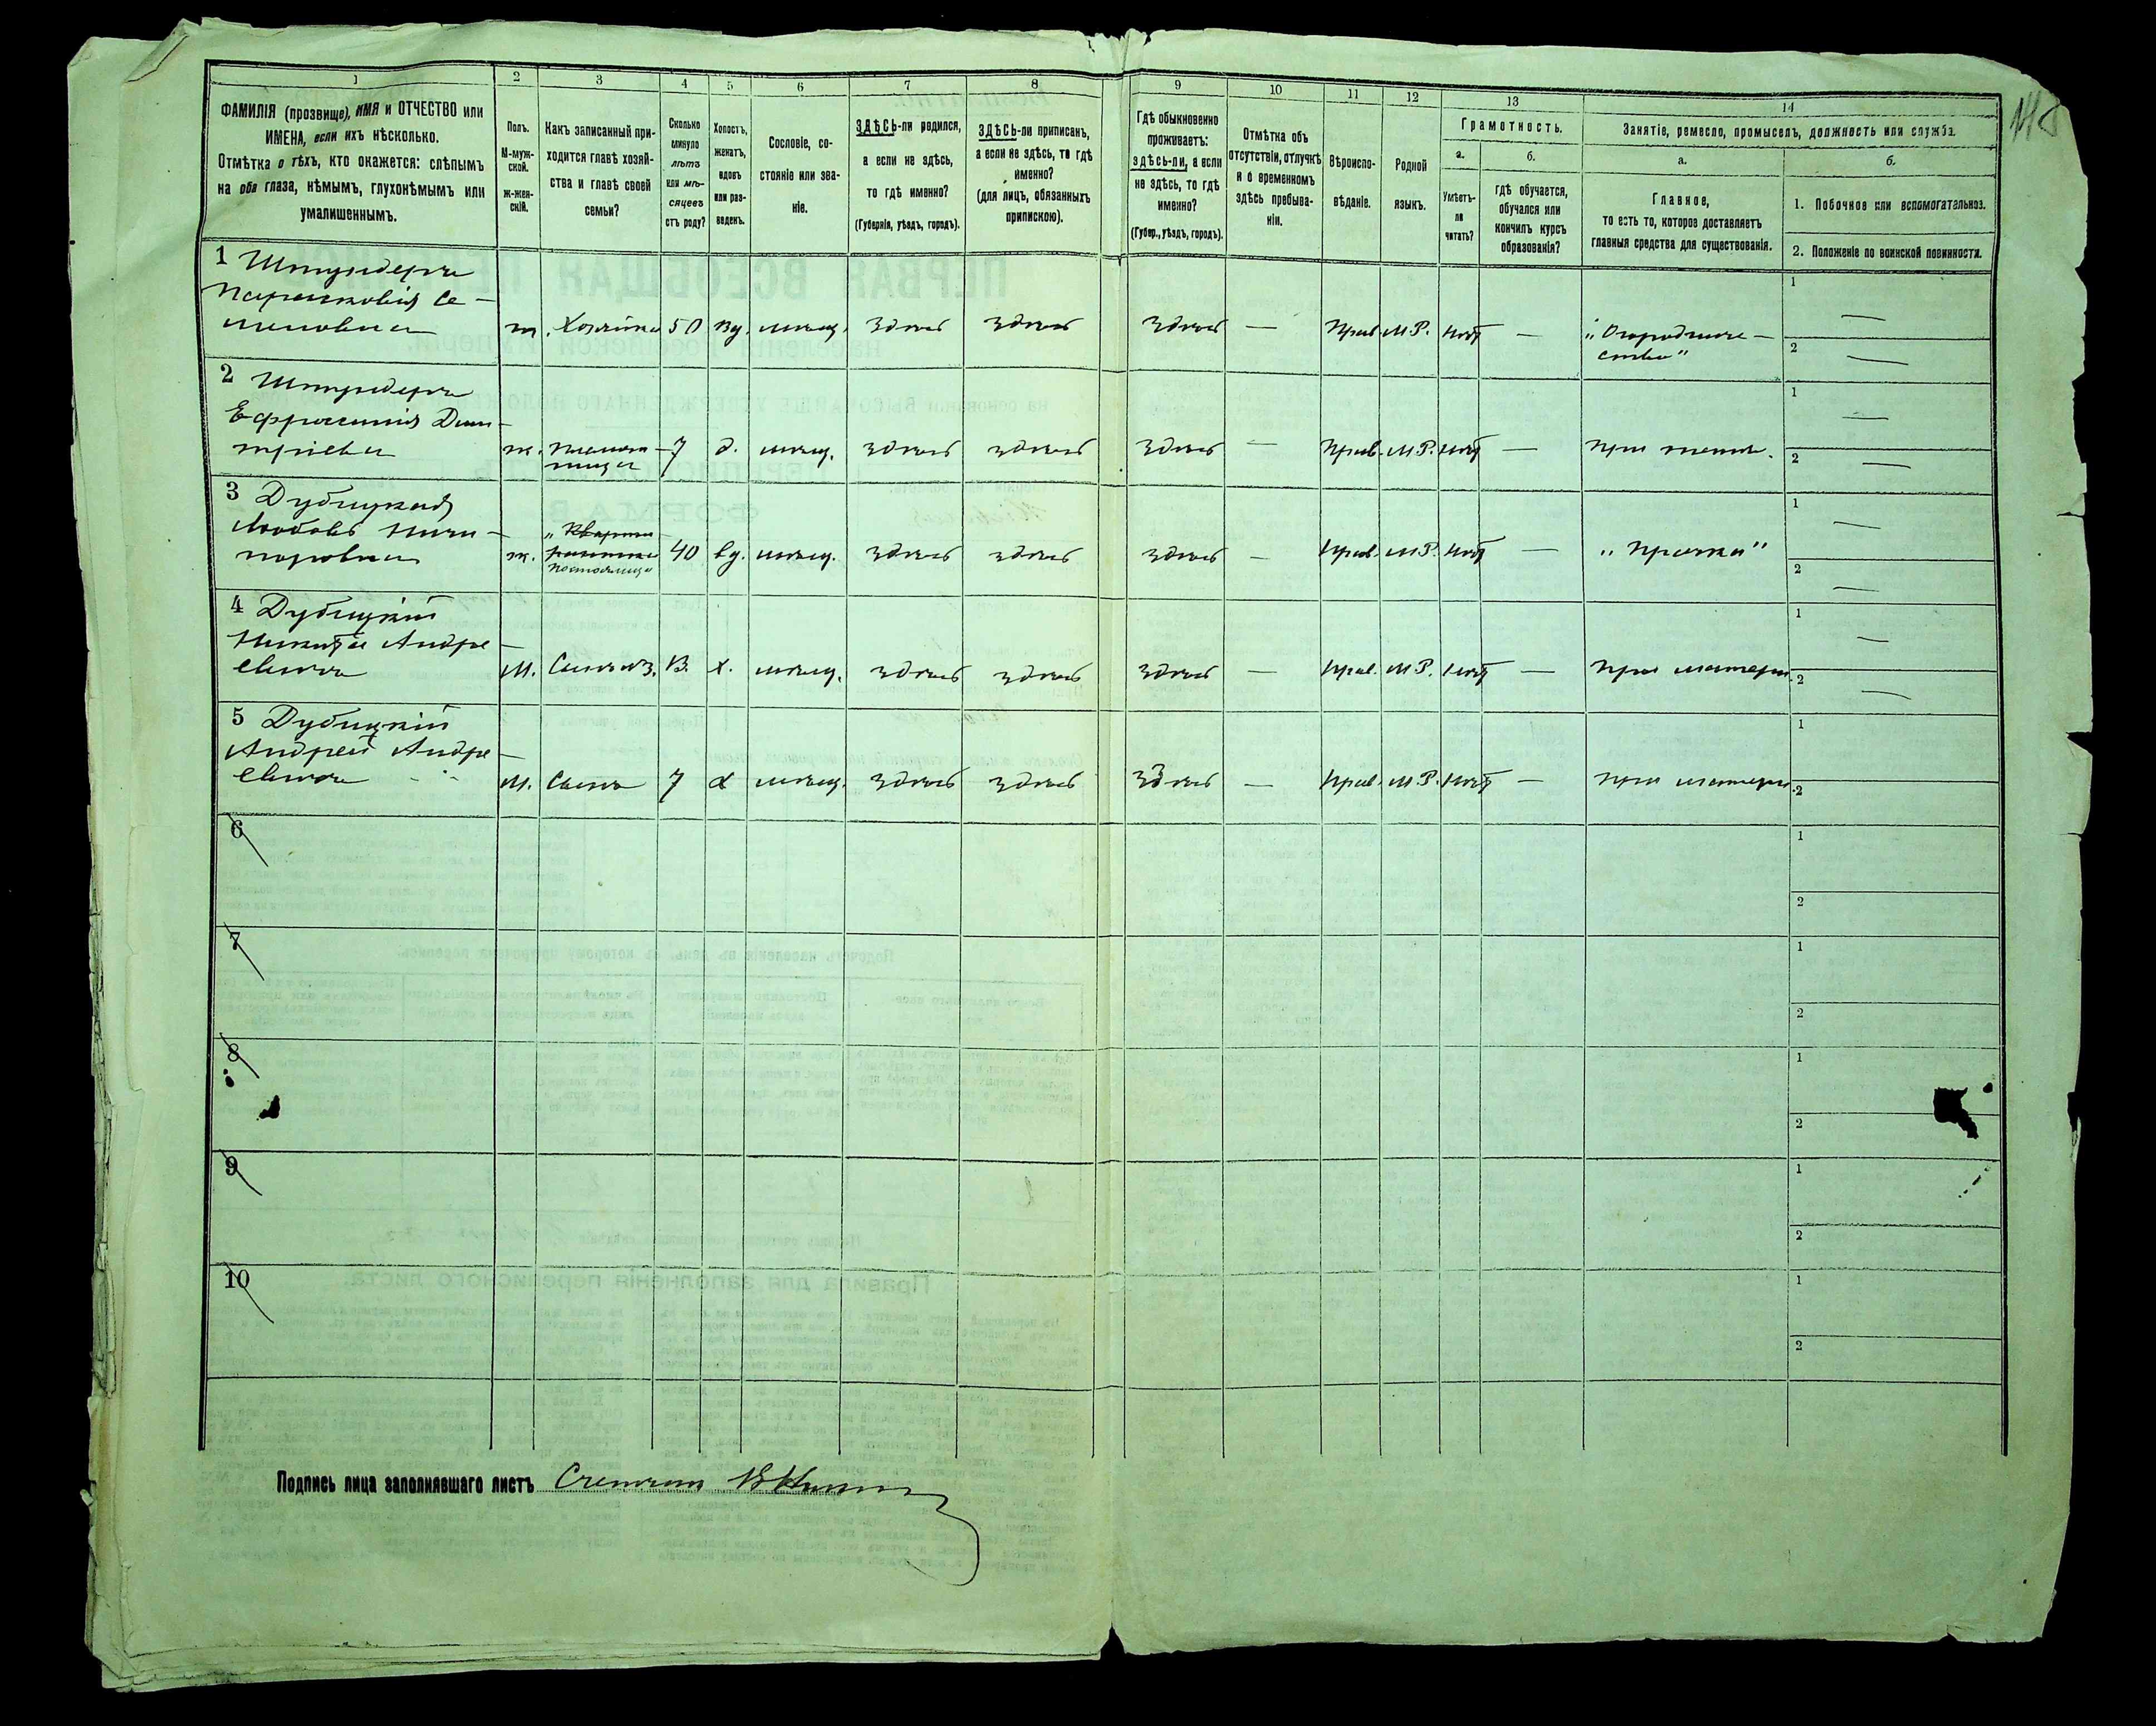 1
2
3
4
5
6
7
8
9
10
11
12
13
14
ФАМИЛІЯ (прозвище), ИМЯ и ОТЧЕСТВО или
ИМЕНА, если ихъ нѣсколько.
Отмѣтка о тѣхъ, кто окажется: слѣпымъ
на оба глаза, нѣмымъ, глухонѣмымъ или
умалишеннымъ.
Полъ.
М-муж-
ской.
Ж-жен-
скій.
Какъ записанный при-
ходится главѣ хозяй-
ства и главѣ своей
семьи?
Сколько
минуло
лѣтъ
или мѣ-
сяцевъ
отъ роду?
Холостъ,
женатъ,
вдовъ
или раз-
веденъ.
Сословіе, со-
стояніе или зва-
ніе.
ЗДѢСЬ-ли родился,
а если не здѣсь,
то гдѣ именно?
(Губернія, уѣздъ, городъ).
ЗДѢСЬ-ли приписанъ,
а если не здѣсь, то гдѣ
именно?
(для лицъ, обязанныхъ
припискою).
Гдѣ обыкновенно
проживаетъ:
здѣсь-ли, а если
не здѣсь, то гдѣ
именно?
(Губер., уѣздъ, городъ).
Отмѣтка объ
отсутствіи, отлучкѣ
и о временномъ
здѣсь пребыва-
ніи.
Вѣроиспо-
вѣданіе.
Родной
языкъ.
Грамотность.
а.
Умѣетъ-
ли
читать?
б.
гдѣ обучается,
обучался или
кончилъ курсъ
образованія?
Занятіе, ремесло, промыселъ, должность или служба.
а.
Главное,
то есть то, которое доставляетъ
главныя средства для существованія.
б.
1. Побочное или вспомогательное.
2. Положеніе по воинской повинности.
1 Штундеръ
Парасковія Се-
меновна
ж. Хозяйка 50 вд. мѣщ. Здѣсь Здѣсь Здѣсь — Прав. М.Р. нѣтъ — „Огородниче-
ство" 1 — 2 —
2 Штундеръ
Ефросинія Дми-
тріева
ж. племян-
ница 7 д. мѣщ. здѣсь здѣсь здѣсь — Прав. М.Р. нѣтъ — при теткѣ. 1 — 2 —
3 Дубицкая
Любовь Ничи-
поровна
ж. „Кварти-
рантка
постоялица 40 вд. мѣщ. здѣсь здѣсь здѣсь — Прав. М.Р. нѣтъ — „Прачка" 1 — 2 —
4 Дубицкій
Никита Андре-
евичъ
М. Сынъ х. мѣщ. здѣсь здѣсь здѣсь — Прав. М.Р. нѣтъ — при матери. 1 — 2 —
5 Дубицкій
Андрей Андре-
евичъ
М. Сынъ 7 х мѣщ. здѣсь здѣсь здѣсь — Прав. М.Р. нѣтъ — при матери. 1 2
6 1 2
7 1 2
8 1 2
9 1 2
10 1 2
Подпись лица заполнявшаго листъ Счетчикъ